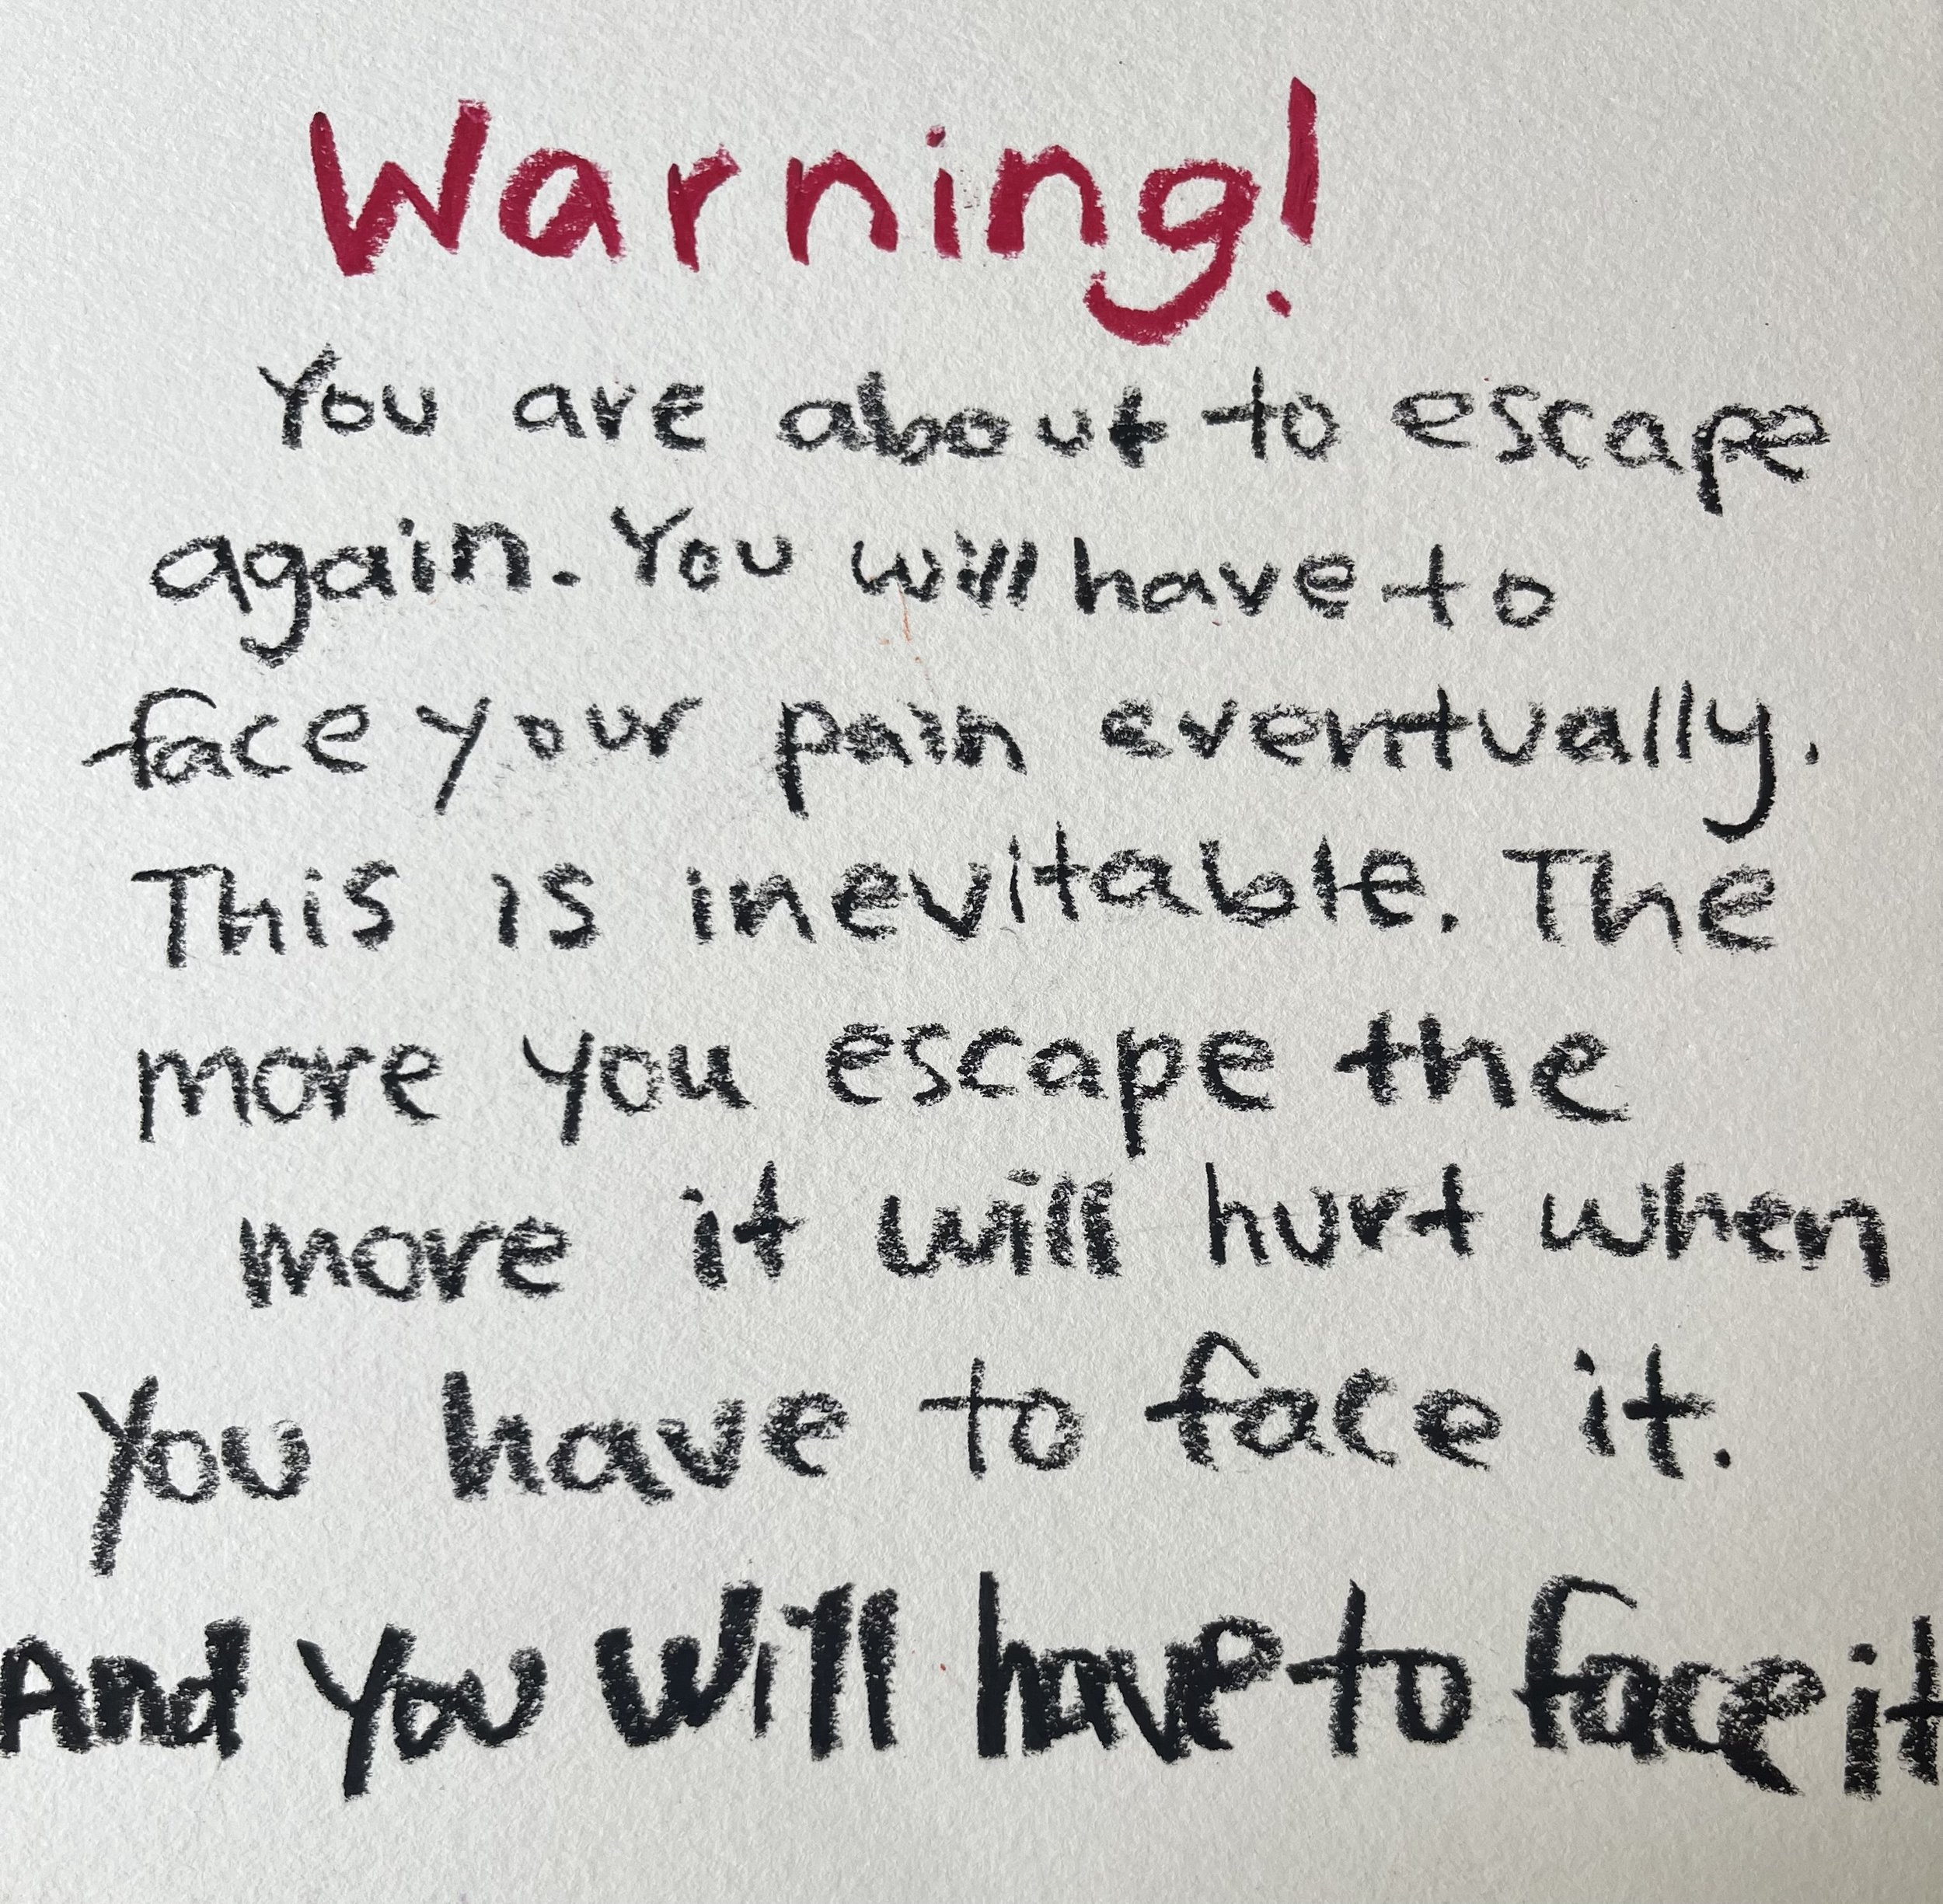 Warning!
You are about to escape
again. You will have to
face your pain eventually.
This is inevitable. The
more you escape the
more it will hurt when
you have to face it.
And you will have to face it